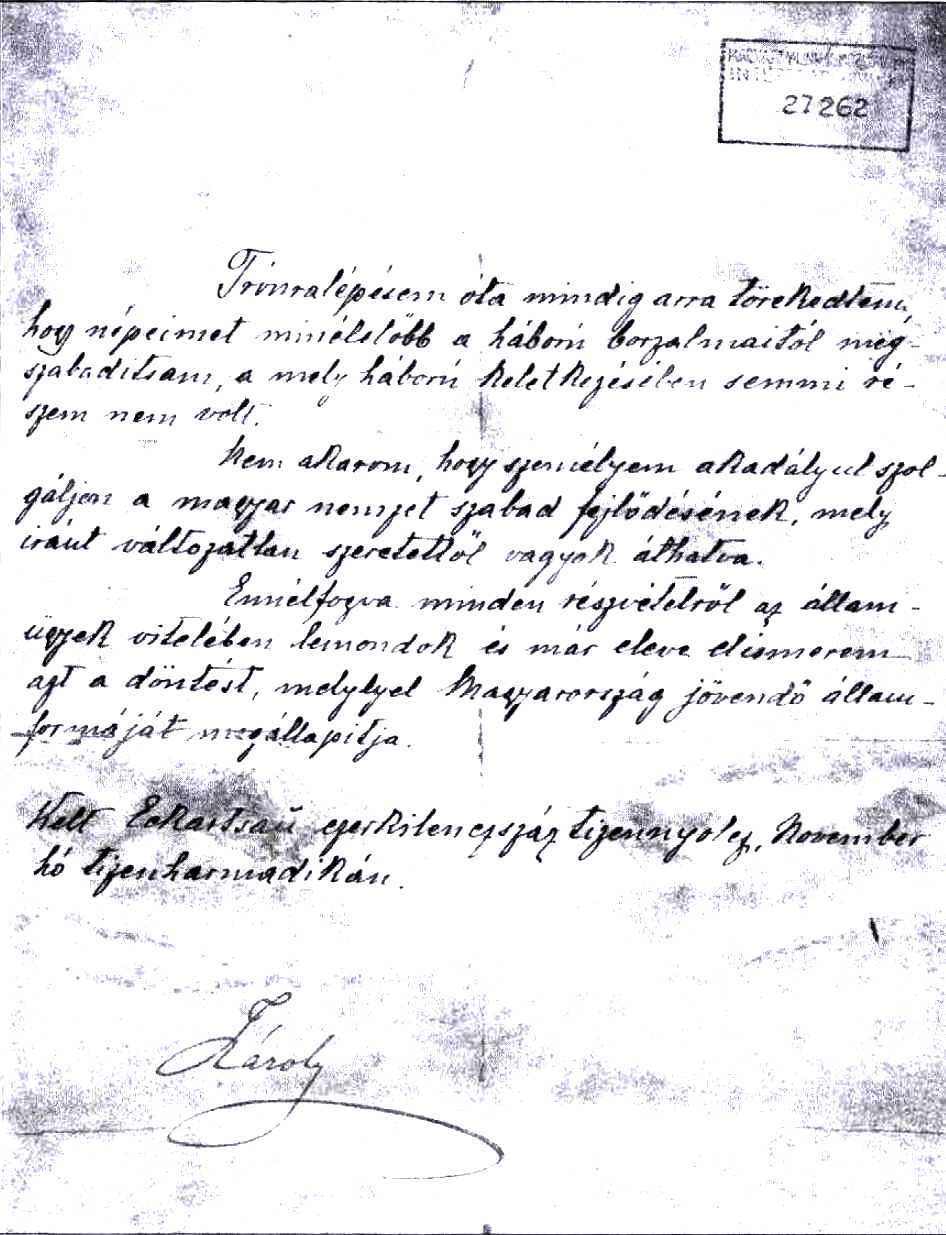 27262
Trónralépésem óta mindig arra törekedtem,
hogy népeimet minélelőbb a háború borzalmaitól meg-
szabaditsam, a mely háború keletkezésében semmi ré-
szem nem volt.
Nem akarom, hogy személyem akadályul szol-
gáljon a magyar nemzet szabad fejlődésének, mely
iránt változatlan szeretettől vagyok áthatva.
Ennélfogva minden részvételről az állam-
ügyek vitelében lemondok és már eleve elismerem
azt a döntést, melylyel Magyarország jövendő állam-
formáját megállapitja.
Kelt Eckartsau ezerkilenczszáz tizennyolcz, November
hó tizenharmadikán.
Károly